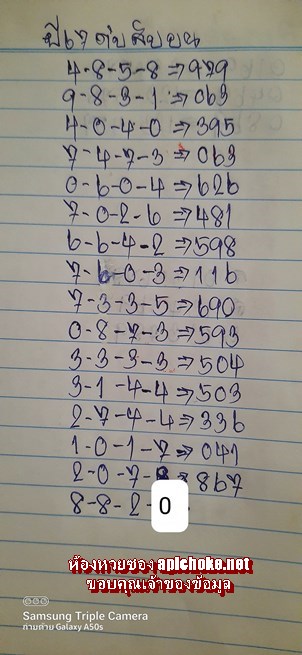 ปี 67 ดับสิบบน
4-8-5-8⇒979
9-8-3-1⇒063
4-0-4-0⇒395
7-4-7-3⇒063
0-6-0-4⇒626
7-0-2-6⇒481
6-6-4-2⇒598
7-6-0-3⇒116
7-3-3-5⇒690
0-8-7-3⇒593
3-3-3-3⇒504
3-1-4-4⇒503
2-7-4-4⇒336
1-0-1-7⇒041
2-0-7-8⇒867
8-8-2-0
ห้องหวยซอง apichoke.net
ขอบคุณเจ้าของข้อมูล
Samsung Triple Camera
ถ่ายด้วย Galaxy A50s